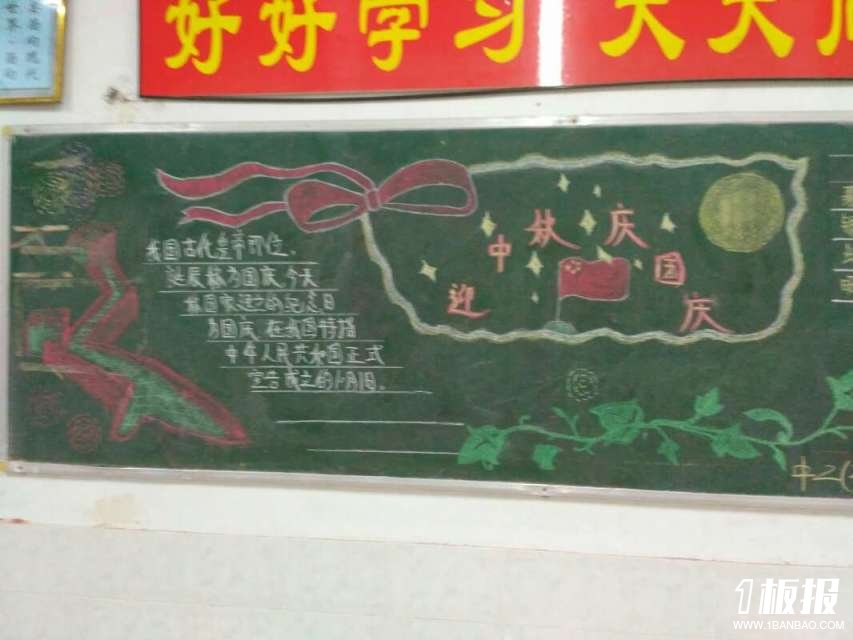 好好学习 天天
面向现代
世界 面向
我国古代皇帝即位、
诞辰称为国庆.今天
称国家建立的纪念日
为国庆.在我国特指
中华人民共和国正式
宣告成立的10月1日.
迎中秋庆国庆
1板报
WWW.1BANBAO.COM